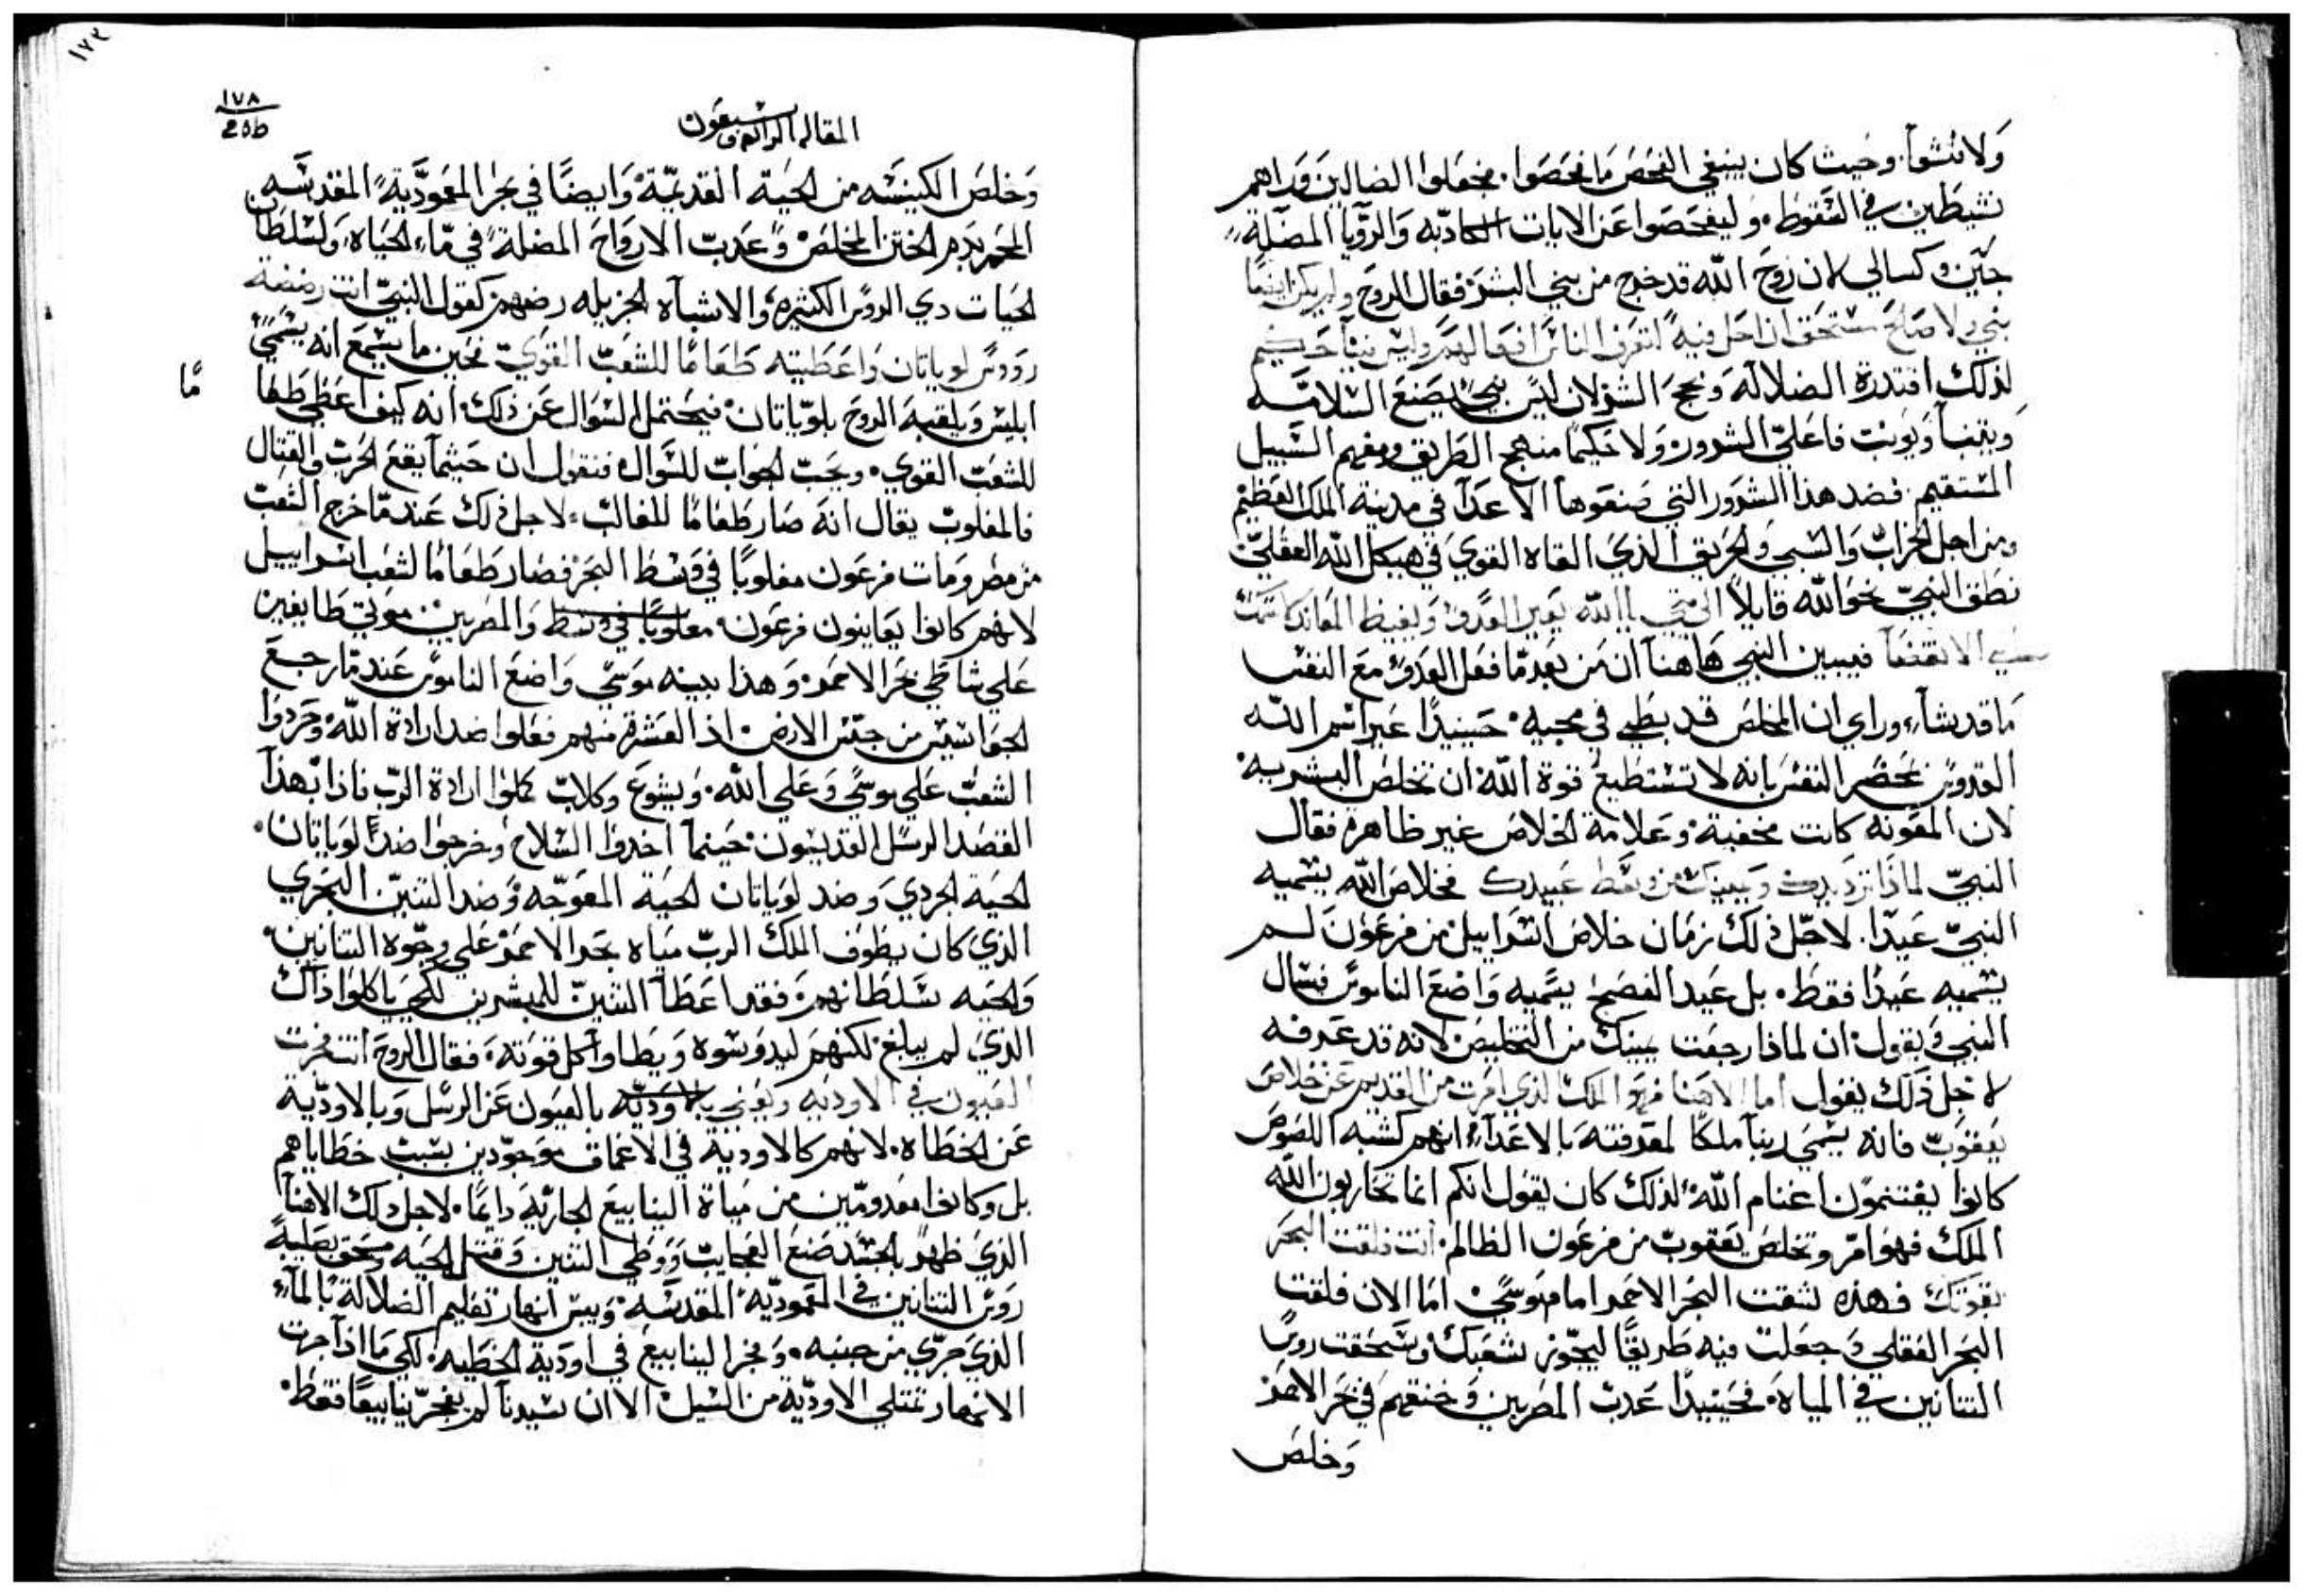 ولا نشوآ. وحيث كان ينبغي الفحص ما فحصوا. فجعلوا الضالين وراهم
نشيطين في السقوط. وليفحصوا عن الايات الكادبه والرويا المضلة
جين وكسالي لان روح الله قد خرج من بني البشر فقال الروح ولم يكن ايضا
لتعرف الناس افعالهم وليس نبيا حكيم
لذلك اقتدرة الضلالة ونجح الشرور لان ليس نبي ليصنع السلامه
فاعلي الشرور ولا حكيما منهج الطريق ومفهم السبيل
المستقيم. فضد هذا الشرور التي صنعوها الاعدآ في مدينة الملك العظيم
ومن اجل الخراب والسبي والحريق الذي القاه القوي في هيكل الله العقلي
نطق النبي نحو الله قايلا الي متي يا الله يعير العدو ويغيظ المعاند اسمك
الي الانقضآ فيبين النبي هاهنا ان من بعد ما فعل العدو مع النفس
ما قد يشآ وراي ان المخلص قد بطي في مجيه. حينيدا عير اسم الله
القدوس بحضر النفس بانه لا تستطيع قوة الله ان تخلص البشريه
لان المعونه كانت مخفية وعلامة الخلاص غير ظاهرة فقال
النبي لماذا ترد يدك ويمينك من وسط عبيدك فخلاص الله يسميه
النبي عيدا. لاجل ذلك زمان خلاص اسراييل من فرعون لم
يسميه عيدا فقط. بل عيد الفصح يسميه واضع الناموس فسال
النبي ويقول ان لماذا رجعت يمينك من التخليص لانه قد عرفه
لاجل ذلك يقول اما الاهنا فهو الملك الذي امرت من القديم عن خلاص
يعقوب فانه يسمي ربنا ملكا لمعرفته بالاعدآ انهم كشبه اللصوص
كانوا يغتنمون اغنام الله لذلك كان يقول انكم انما تحاربون الله
الملك فهو امر وتخلص يعقوب من فرعون الظالم. انت فلقت البحر
بقوتك فهذه لشقت البحر الاحمر امام موسي اما الان فلقت
البحر العقلي وجعلت فيه طريقا ليجوز شعبك وسحقت روس
التنانين في المياه. فحينيدا عدب المصريين وخنقهم في بحر الاحمر
وخلص
١٧٢
١٧٨
256
المقاله الرابعه وسبعون
وخلص الكنيسه من الحية القديمة وايضا في بحر المعمودية المقدسه
المحمر بدم الختن المخلص وعدب الارواح المضلة في مآء الحياه ولسلطان
الحيات دي الروس الكثيره والاشباه الجزيله رضهم كقول النبي انت رضضة
رووس لوياتان واعطيته طعاما للشعب القوي فحين ما يسمع انه يسمي
ابليس ويلقبه الروح بلوياتان فيحتمل السوال عن ذلك. انه كيف اعطي طعا
ما
للشعب القوي. ويجب الجواب للسوال فنقول ان حيثما يقع الحرب والقتال
فالمغلوب يقال انه صار طعاما للغالب. لاجل ذلك عند ما خرج الشعب
من مصر ومات فرعون مغلوبا في وسط البحر فصار طعاما لشعب اسراييل
لانهم كانوا يعاينون فرعون مغلوبا في وسط والمصريين موتي طايفين
علي شاطي بحر الاحمر. وهذا بينه موسي واضع الناموس عند ما رجع
الجواسيس من جس الارض. اذ العشرة منهم فعلوا ضد ارادة الله وحردوا
الشعب علي موسي وعلي الله. ويشوع وكلاب كملوا ارادة الرب فاذا بهذا
القصد الرسل القديسون حينما اخدوا السلاح وخرجوا ضد لوياتان
الحية الجردي وضد لوياتان الحية المعوجه وضد التنين البحري
الذي كان يطوف الملك الرب مياه بحر الاحمر علي وجوه التنانين
والحيه سلطانهم فقد اعطا التنين للمبشرين لكي ياكلوا ذاك
الذي لم يبلع لكنهم ليدوسوه ويطاوا كل قوته. فقال الروح انت فجرت
العيون في الاوديه ويعني بالاوديه بالعيون عن الرسل وبالاوديه
عن الخطاه. لانهم كالاودية في الاعماق موجودين بسبب خطاياهم
بل وكانوا معدومين من مياة الينابيع الجارية دايما. لاجل ذلك الاهنا
الذي ظهر بالجسد صنع العجايب ووطي التنين وقتل الحيه وسحق بصليبه
روس التنانين في المعمودية المقدسه ويبس انهار تعليم الضلالة بالمآء
الذي جري من جنبه. وفجر الينابيع في اودية الخطيه. لكي ما اذا جرت
الانهار تمتلي الاودية من السيل الا ان سيدنا لم يفجر ينابيعا فقط.